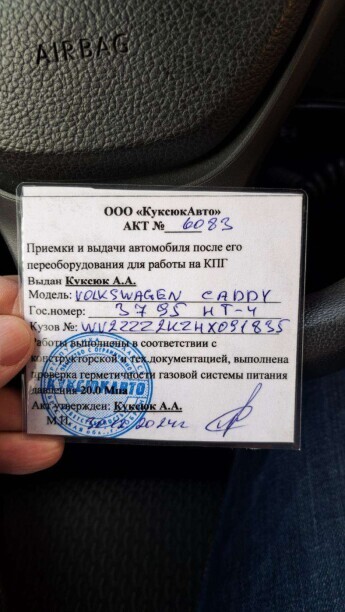 AIRBAG
ООО «КуксюкАвто»
АКТ № 6083
Приемки и выдачи автомобиля после его
переоборудования для работы на КПГ
Выдан Куксюк А.А.
Модель: VOLKSWAGEN CADDY
Гос.номер: 3795 НТ-4
Кузов №: WV2ZZZ2KZHX091835
Работы выполнены в соответствии с
конструкторской и тех.документацией, выполнена
проверка герметичности газовой системы питания
давления 20.0 Мпа
Акт утвержден: Куксюк А.А.
М.П. 12 2024г
КУКСЮКАВТО